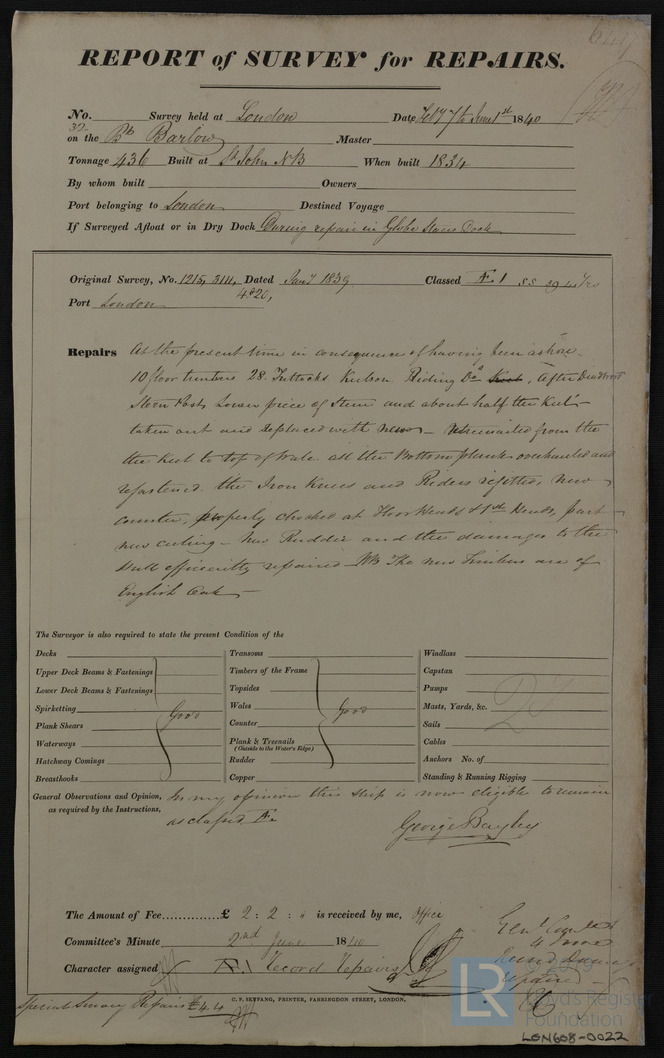 REPORT of SURVEY for REPAIRS.
No. 32 Survey held at London Date Feby 7 to June 1st 1840
on the Bk Barlow Master
Tonnage 436 Built at St John NB When built 1834
By whom built Owners
Port belonging to London Destined Voyage
If Surveyed Afloat or in Dry Dock During repair in Globe Stairs Dock
Original Survey, No. 1215, 3114, 4820, Dated Jany 1839 Classed Æ 1 SS 39 4 Yrs
Port London
Repairs As the present time in consequence of having been ashore
10 floor timbers 28 Futtocks Keelson Riding Do After Deadwood
Stern Post, Lower piece of Stem and about half the Keel
taken out and replaced with new – Untrenailed from the
the Keel to top of Wale all the Bottom plank overhauled and
refastened. the Iron Knees and Riders refitted, New
counter, properly chocked at Floor Heads & 1st Heads, part
new ceiling – New Rudder and the damages to the
Hull efficiently repaired – NB The new Timbers are of
English Oak –
The Surveyor is also required to state the present Condition of the
Decks
Upper Deck Beams & Fastenings
Lower Deck Beams & Fastenings
Spirketting
Plank Shears
Waterways
Hatchway Comings
Breasthooks
Good
Transoms
Timbers of the Frame
Topsides
Wales
Counter
Plank & Treenails
(Outside to the Water's Edge)
Rudder
Copper
Good
Windlass
Capstan
Pumps
Masts, Yards, &c.
Sails
Cables
Anchors No. of
Standing & Running Rigging
General Observations and Opinion, as required by the Instructions, In my opinion this Ship is now eligible to remain
as classed Æ
George Bayley
The Amount of Fee £ 2 : 2 : " is received by me, Office
Committee's Minute 2nd June 1840
Character assigned Æ 1 Record Repairs
C. F. SEYFANG, PRINTER, FARRINGDON STREET, LONDON.
Special Survey Repairs £4.4
LR
2019
Lloyd's Register
Foundation
LON608-0022